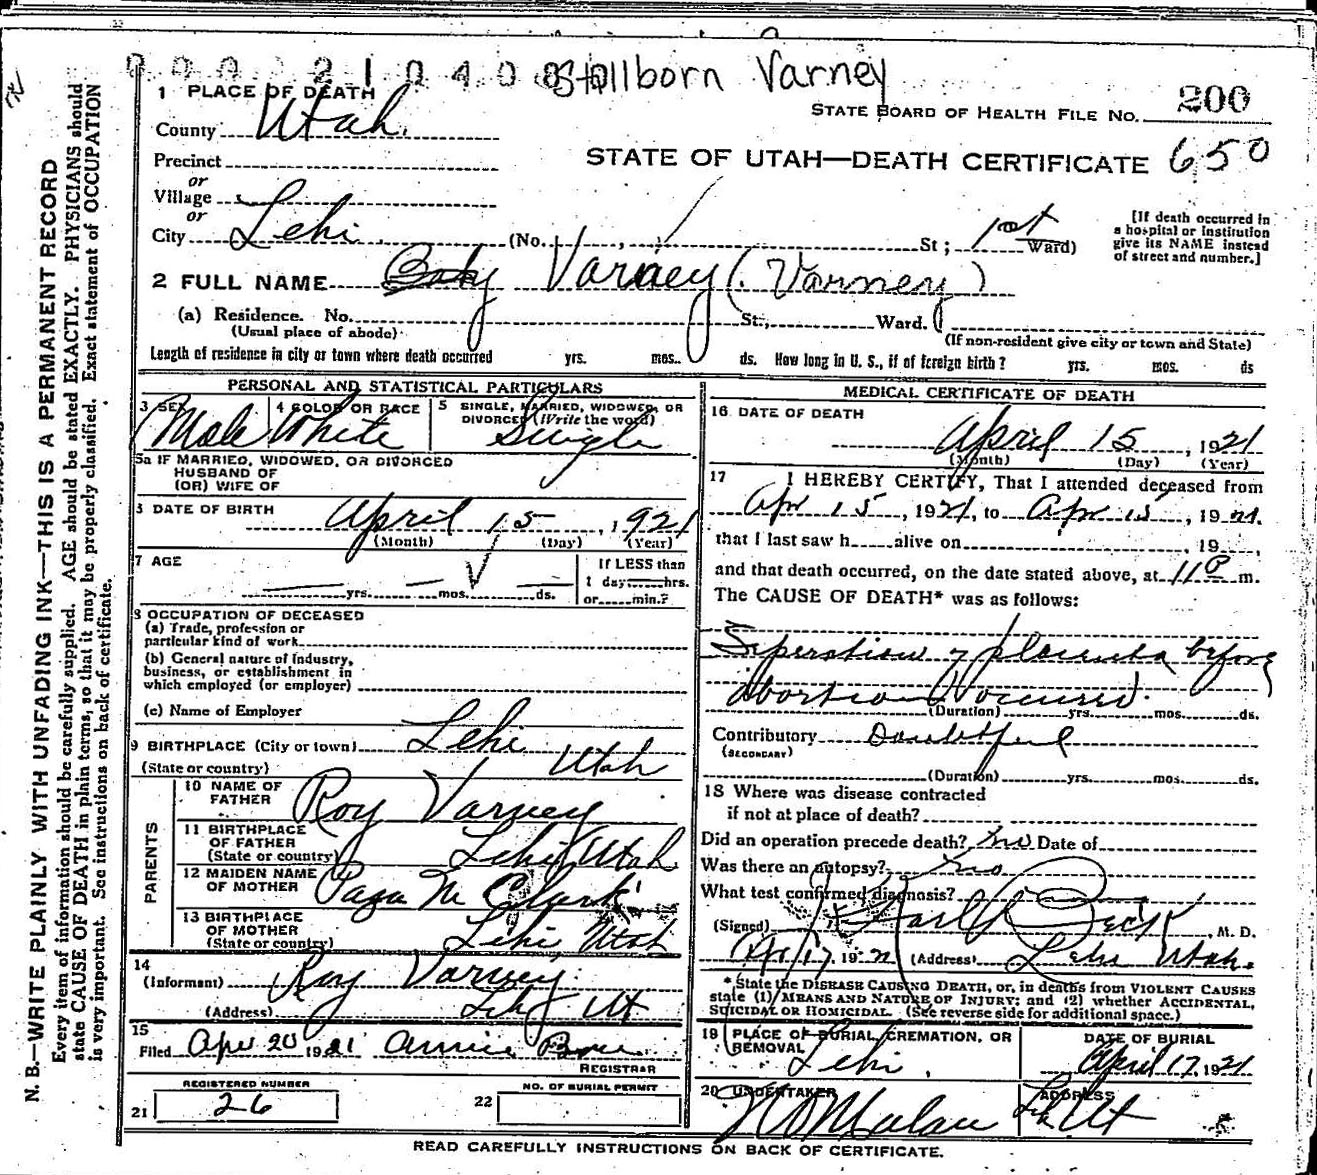 Stillborn Varney
1 PLACE OF DEATH
STATE BOARD OF HEALTH FILE NO. 200
County Utah.
STATE OF UTAH—DEATH CERTIFICATE 650
Precinct
or
Village
or
City Lehi (No. St; 1st Ward)
[If death occurred in
a hospital or institution
give its NAME instead
of street and number.]
2 FULL NAME Baby Varney (Varney)
(a) Residence. No. St., Ward.
(Usual place of abode)
(If non-resident give city or town and State)
Length of residence in city or town where death occurred yrs. mos. ds. How long in U. S., if of foreign birth? yrs. mos. ds
PERSONAL AND STATISTICAL PARTICULARS
3 SEX 4 COLOR OR RACE 5 SINGLE, MARRIED, WIDOWED, OR
DIVORCED (Write the word)
Male White Single
5a IF MARRIED, WIDOWED, OR DIVORCED
HUSBAND OF
(OR) WIFE OF
DATE OF BIRTH April 15, 1921
(Month) (Day) (Year)
7 AGE
yrs. mos. ds.
If LESS than
1 day hrs.
or min.?
8 OCCUPATION OF DECEASED
(a) Trade, profession or
particular kind of work
(b) General nature of industry,
business, or establishment in
which employed (or employer)
(c) Name of Employer
9 BIRTHPLACE (City or town) Lehi
(State or country) Utah
PARENTS
10 NAME OF
FATHER Roy Varney
11 BIRTHPLACE
OF FATHER
(State or country) Lehi Utah
12 MAIDEN NAME
OF MOTHER M. Clark
13 BIRTHPLACE
OF MOTHER
(State or country) Lehi Utah
14
(Informant) Roy Varney
(Address) Lehi Ut
15
Filed Apr 20 1921 Annie
REGISTRAR
REGISTERED NUMBER
21 26
NO. OF BURIAL PERMIT
22
MEDICAL CERTIFICATE OF DEATH
16 DATE OF DEATH
April 15, 1921
(Month) (Day) (Year)
17 I HEREBY CERTIFY, That I attended deceased from
Apr 15, 1921, to Apr 15, 1921.
that I last saw h alive on , 19
and that death occurred, on the date stated above, at 11 P m.
The CAUSE OF DEATH* was as follows:
Seperation of placenta before
abortion occured.
(Duration) yrs. mos. ds.
Contributory Doubtful
(SECONDARY)
(Duration) yrs. mos. ds.
18 Where was disease contracted
if not at place of death?
Did an operation precede death? no Date of
Was there an autopsy? no
What test confirmed diagnosis?
(Signed) Beck, M. D.
4/17, 1921 (Address) Lehi Utah.
* State the DISEASE CAUSING DEATH, or, in deaths from VIOLENT CAUSES
state (1) MEANS AND NATURE OF INJURY; and (2) whether ACCIDENTAL,
SUICIDAL OR HOMICIDAL. (See reverse side for additional space.)
19 PLACE OF BURIAL, CREMATION, OR
REMOVAL Lehi.
DATE OF BURIAL
April 17, 1921
20 UNDERTAKER ADDRESS
Lehi Ut
READ CAREFULLY INSTRUCTIONS ON BACK OF CERTIFICATE.
N. B.—WRITE PLAINLY WITH UNFADING INK—THIS IS A PERMANENT RECORD
Every item of information should be carefully supplied. AGE should be stated EXACTLY. PHYSICIANS should
state CAUSE OF DEATH in plain terms, so that it may be properly classified. Exact statement of OCCUPATION
is very important. See instructions on back of certificate.